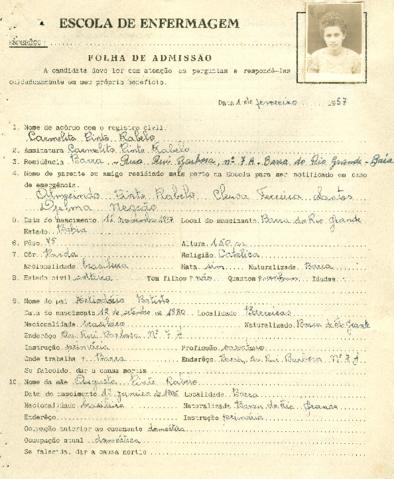 ESCOLA DE ENFERMAGEM
FOLHA DE ADMISSÃO
A candidata deve ler com atenção as perguntas e respondê-las
cuidadosamente em seu próprio benefício.
Data 1 de fevereiro 1957
1. Nome de acôrdo com o registro civil.
Carmelita Pinto Rabelo
2. Assinatura Carmelita Pinto Rabelo
3. Residência Barra - Rua Rui Barbosa, nº 7 A - Barra do Rio Grande - Baía
4. Nome de parente ou amigo residindo mais perto da Escola para ser notificado em caso
de emergência.
Pinto Rabelo, Ferreira Santos
5. Data do nascimento Local do nascimento Barra do Rio Grande
Estado Bahia
6. Pêso 45 Altura 1.50
7. Côr Parda Religião Católica
Nacionalidade brasileira Nata sim Naturalizada Barra
8. Estado civil solteira Tem filhos? não Quantos Idades
9. Nome do pai Batista
Data do nascimento 12 de 1880 Localidade
Nacionalidade brasileiro Naturalizado Barra do Rio Grande
Enderêço Rui Barbosa Nº 7 A
Instrução primária Profissão
Onde trabalha ? Barra Enderêço. Barra, Rui Barbosa Nº 7 A
Se falecido, dar a causa mortis
10. Nome da mãe Augusta Pinto Rabelo
Data do nascimento 1º janeiro de Localidade Barra
Nacionalidade brasileira Naturalizada Barra do Rio Grande
Enderêço Instrução primária
Ocupação anterior ao casamento doméstica
Ocupação atual doméstica
Se falecida, dar a causa mortis